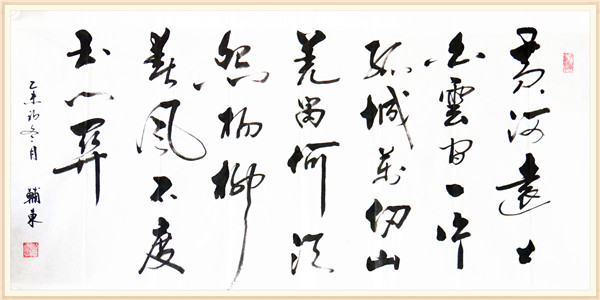 黄河遠上
白雲间一片
孤城萬仞山
羌笛何须
怨杨柳
春風不度
玉门關
乙未初冬月 輔東